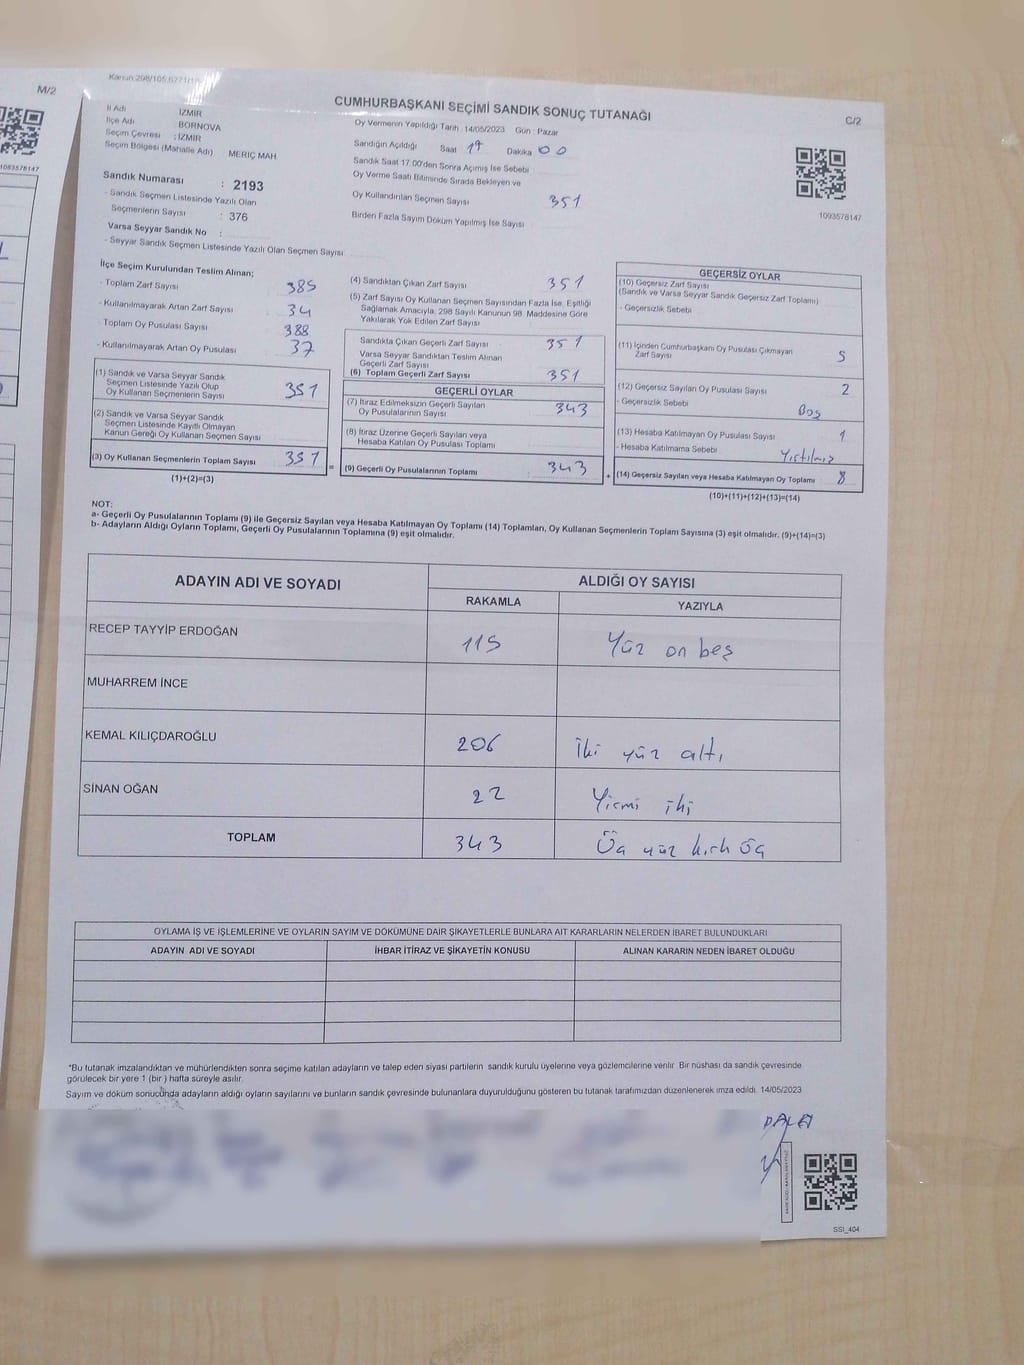 M/2
1093578147
Kanun:298/105,6271/1
CUMHURBAŞKANI SEÇİMİ SANDIK SONUÇ TUTANAĞI
C/2
İl Adı İZMİR
İlçe Adı BORNOVA
Seçim Çevresi : İZMİR
Seçim Bölgesi (Mahalle Adı) MERİÇ MAH
Sandık Numarası : 2193
- Sandık Seçmen Listesinde Yazılı Olan
Seçmenlerin Sayısı : 376
Varsa Seyyar Sandık No :
- Seyyar Sandık Seçmen Listesinde Yazılı Olan Seçmen Sayısı
Oy Vermenin Yapıldığı Tarih 14/05/2023 Gün : Pazar
Sandığın Açıldığı Saat 17 Dakika 00
Sandık Saat 17.00'den Sonra Açılmış İse Sebebi
Oy Verme Saati Bitiminde Sırada Bekleyen ve
Oy Kullandırılan Seçmen Sayısı 351
Birden Fazla Sayım Döküm Yapılmış İse Sayısı
1093578147
İlçe Seçim Kurulundan Teslim Alınan;
- Toplam Zarf Sayısı 385
- Kullanılmayarak Artan Zarf Sayısı 34
- Toplam Oy Pusulası Sayısı 388
- Kullanılmayarak Artan Oy Pusulası 37
(1) Sandık ve Varsa Seyyar Sandık
Seçmen Listesinde Yazılı Olup
Oy Kullanan Seçmenlerin Sayısı 351
(2) Sandık ve Varsa Seyyar Sandık
Seçmen Listesinde Kayıtlı Olmayan
Kanun Gereği Oy Kullanan Seçmen Sayısı
(3) Oy Kullanan Seçmenlerin Toplam Sayısı 351
(1)+(2)=(3)
(4) Sandıktan Çıkan Zarf Sayısı 351
(5) Zarf Sayısı Oy Kullanan Seçmen Sayısından Fazla İse, Eşitliği
Sağlamak Amacıyla, 298 Sayılı Kanunun 98. Maddesine Göre
Yakılarak Yok Edilen Zarf Sayısı
Sandıkta Çıkan Geçerli Zarf Sayısı 351
Varsa Seyyar Sandıktan Teslim Alınan
Geçerli Zarf Sayısı
(6) Toplam Geçerli Zarf Sayısı 351
GEÇERLİ OYLAR
(7) İtiraz Edilmeksizin Geçerli Sayılan
Oy Pusulalarının Sayısı 343
(8) İtiraz Üzerine Geçerli Sayılan veya
Hesaba Katılan Oy Pusulası Toplamı
= (9) Geçerli Oy Pusulalarının Toplamı 343
GEÇERSİZ OYLAR
(10) Geçersiz Zarf Sayısı
(Sandık ve Varsa Seyyar Sandık Geçersiz Zarf Toplamı)
- Geçersizlik Sebebi
(11) İçinden Cumhurbaşkanı Oy Pusulası Çıkmayan
Zarf Sayısı 5
(12) Geçersiz Sayılan Oy Pusulası Sayısı 2
- Geçersizlik Sebebi Boş
(13) Hesaba Katılmayan Oy Pusulası Sayısı 1
- Hesaba Katılmama Sebebi Yırtılmış
+ (14) Geçersiz Sayılan veya Hesaba Katılmayan Oy Toplamı 8
(10)+(11)+(12)+(13)=(14)
NOT:
a- Geçerli Oy Pusulalarının Toplamı (9) ile Geçersiz Sayılan veya Hesaba Katılmayan Oy Toplamı (14) Toplamları, Oy Kullanan Seçmenlerin Toplam Sayısına (3) eşit olmalıdır. (9)+(14)=(3)
b- Adayların Aldığı Oyların Toplamı, Geçerli Oy Pusulalarının Toplamına (9) eşit olmalıdır.
ADAYIN ADI VE SOYADI ALDIĞI OY SAYISI
RAKAMLA YAZIYLA
RECEP TAYYİP ERDOĞAN 115 Yüz on beş
MUHARREM İNCE
KEMAL KILIÇDAROĞLU 206 İki yüz altı
SİNAN OĞAN 22 Yirmi iki
TOPLAM 343 Üç yüz kırk üç
OYLAMA İŞ VE İŞLEMLERİNE VE OYLARIN SAYIM VE DÖKÜMÜNE DAİR ŞİKAYETLERLE BUNLARA AİT KARARLARIN NELERDEN İBARET BULUNDUKLARI
ADAYIN ADI VE SOYADI İHBAR İTİRAZ VE ŞİKAYETİN KONUSU ALINAN KARARIN NEDEN İBARET OLDUĞU
*Bu tutanak imzalandıktan ve mühürlendikten sonra seçime katılan adayların ve talep eden siyasi partilerin sandık kurulu üyelerine veya gözlemcilerine verilir. Bir nüshası da sandık çevresinde
görülecek bir yere 1 (bir) hafta süreyle asılır.
Sayım ve döküm sonucunda adayların aldığı oyların sayılarını ve bunların sandık çevresinde bulunanlara duyurulduğunu gösteren bu tutanak tarafımızdan düzenlenerek imza edildi. 14/05/2023
SSI_404